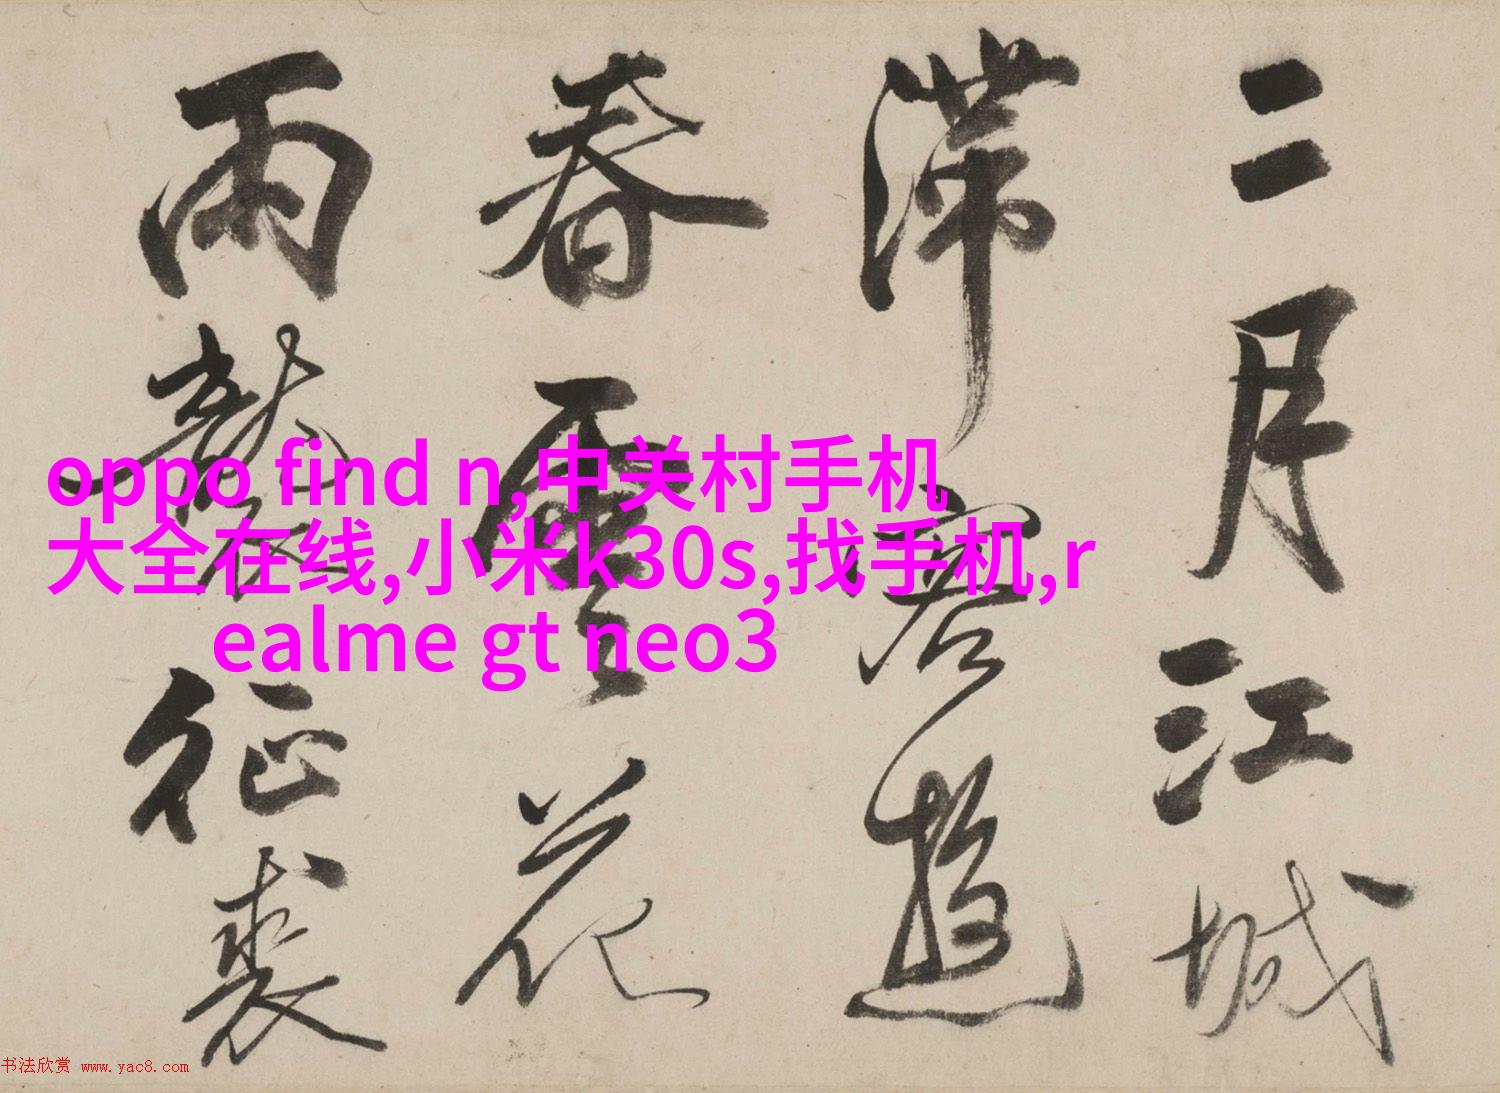 二月江城
滯客遊
春雲花
雨襲征裘
oppo find n,中关村手机
大全在线,小米k30s,找手机,r
ealme gt neo3
书法欣赏 www.yac8.com